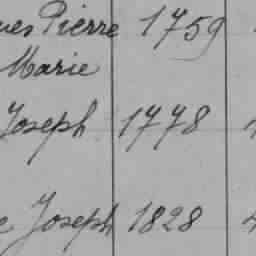 ues Pierre 1759
Marie
Joseph 1778
e Joseph 1828